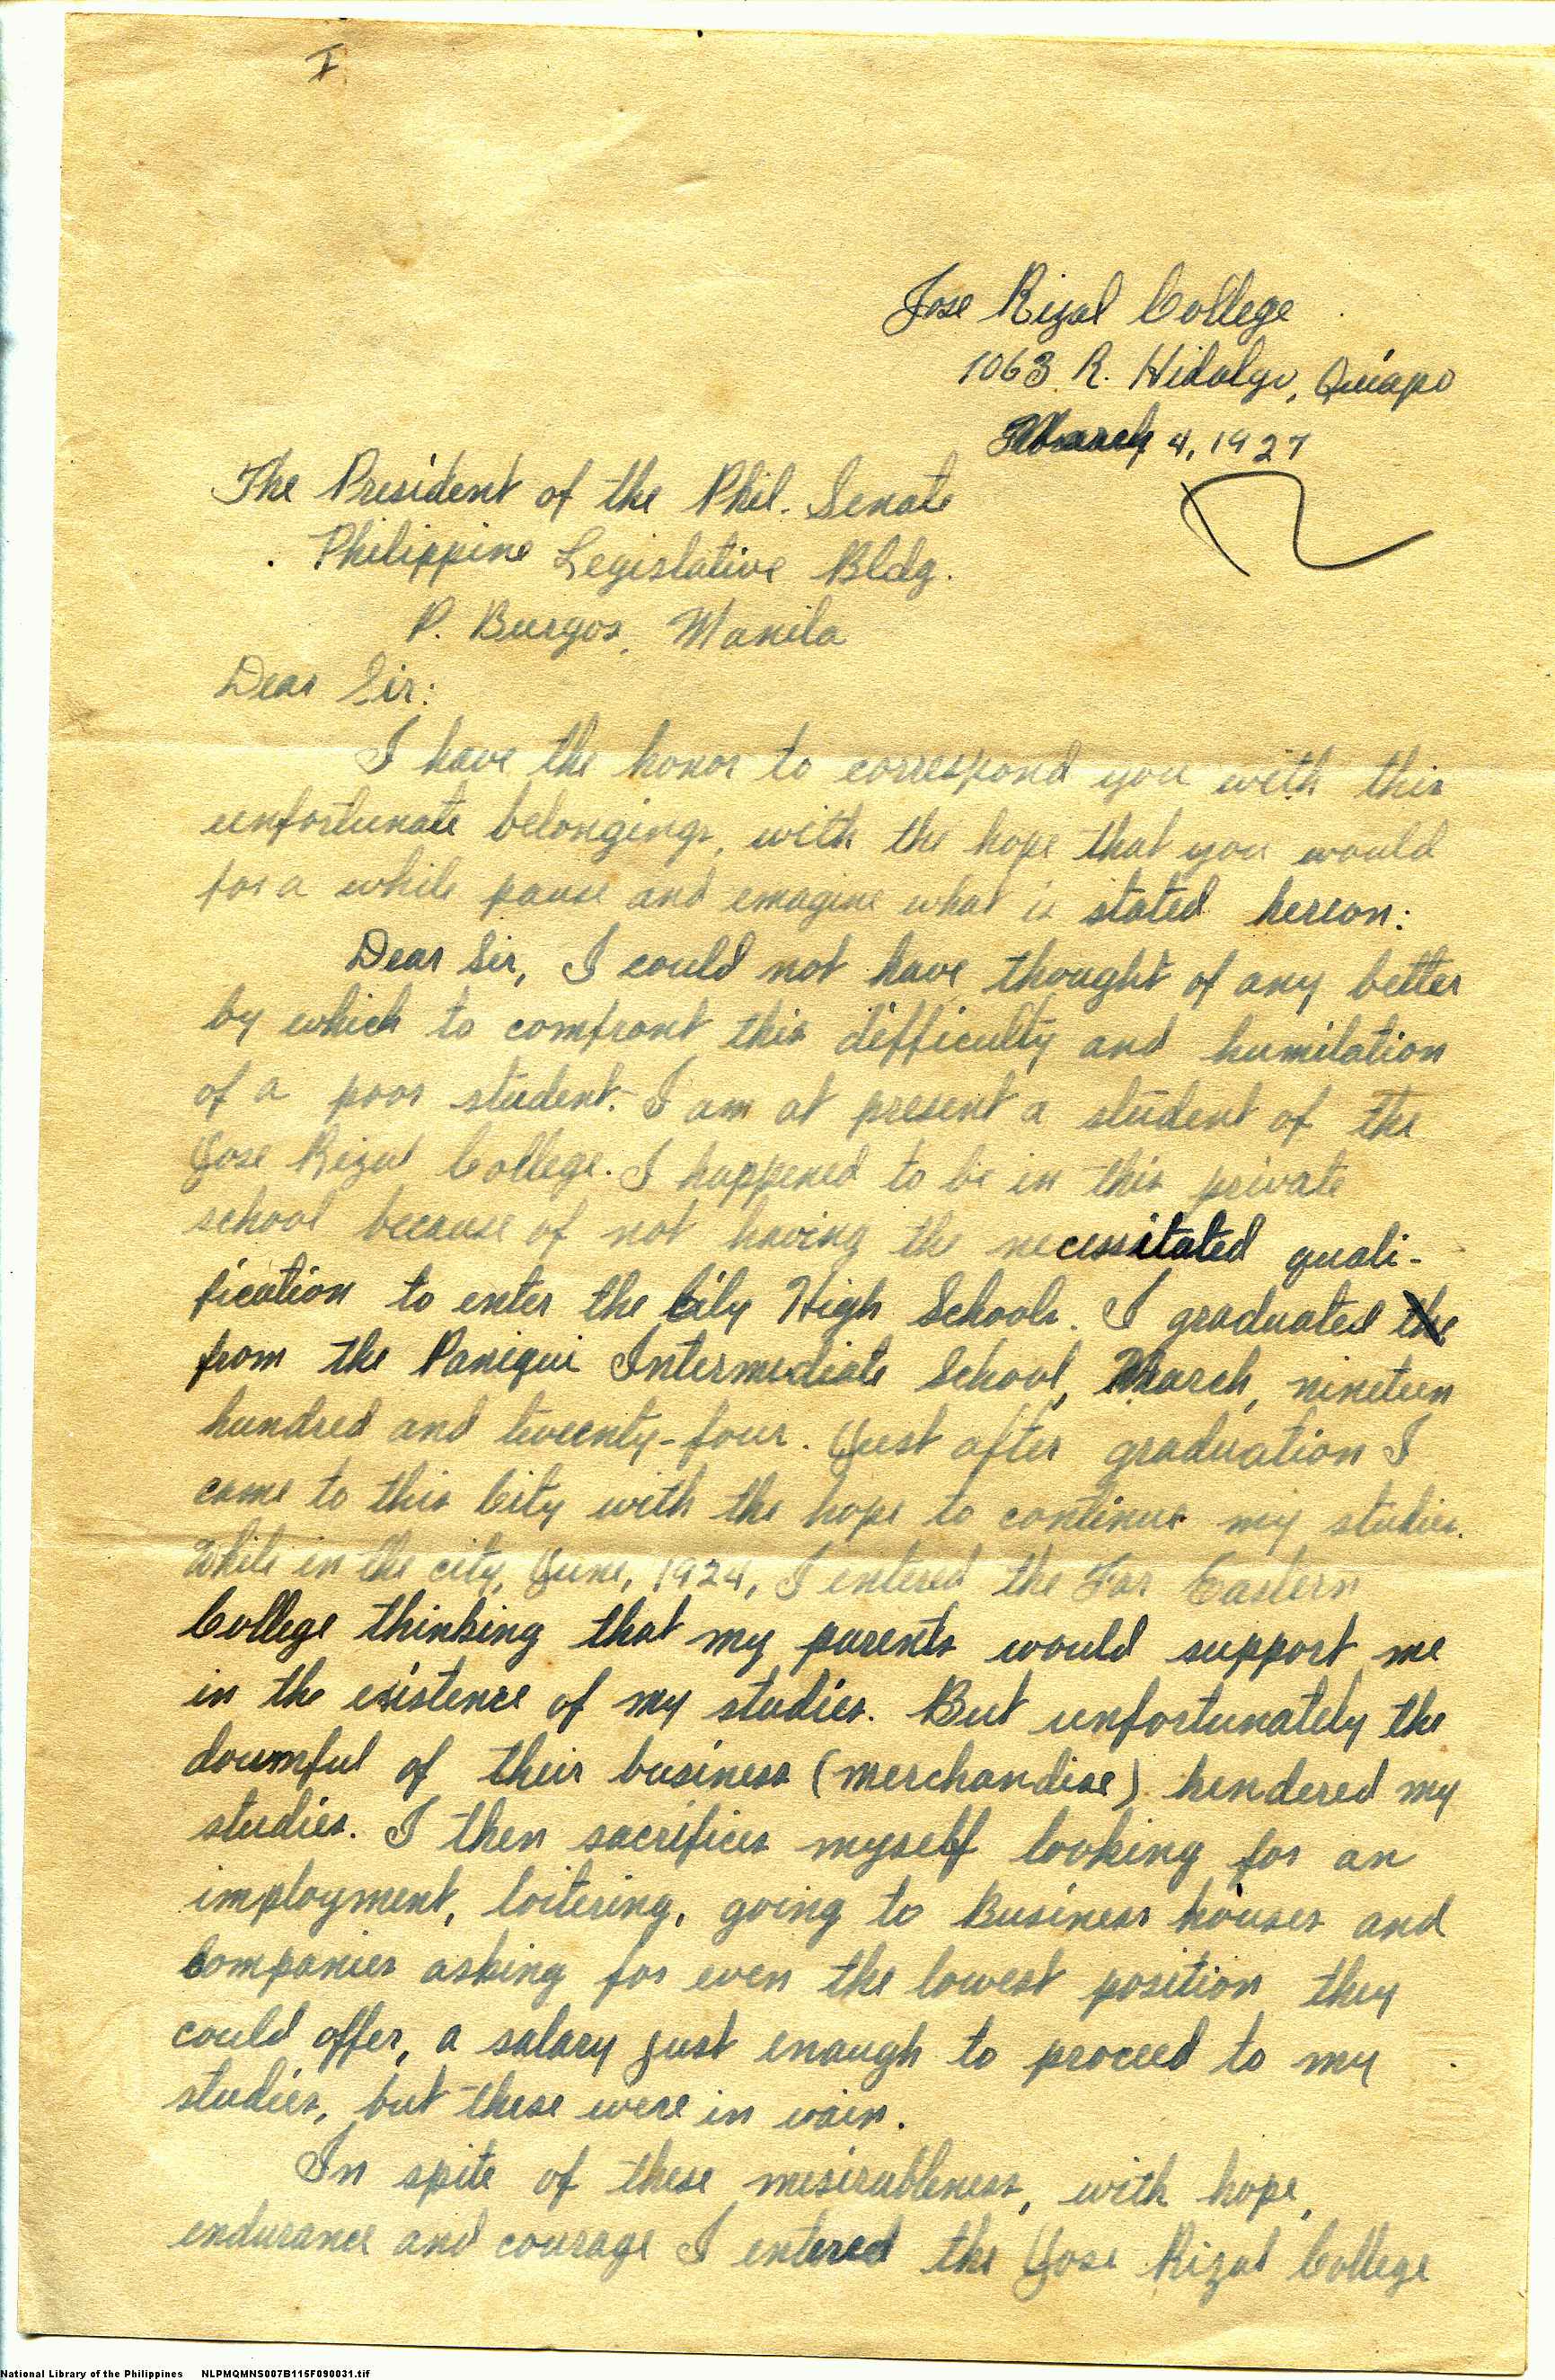 I
Jose Rizal College
1063 R. Hidalgo, Quiapo
March 4, 1927
The President of the Phil. Senate
Philippine Legislative Bldg.
P. Burgos, Manila
Dear Sir:
I have the honor to correspond you with this
unfortunate belongings, with the hope that you would
for a while pause and emagine what is stated hereon:
Dear Sir, I could not have thought of any better
by which to comfront this difficulty and humilation
of a poor student. I am at present a student of the
Jose Rizal College. I happened to be in this private
school because of not having the necessitated quali-
fication to enter the City High Schools. I graduated the
from the Paniqui Intermediate School, March, nineteen
hundred and tweenty-four. Just after graduation I
came to this City with the hope to continue my studies.
While in the city, June, 1924, I entered the Far Eastern
College thinking that my parents would support me
in the existence of my studies. But unfortunately the
dowmful of their business (merchandise) hendered my
studies. I then sacrifices myself looking for an
imployment, loitering, going to Business houses and
Companies asking for even the lowest position they
could offer, a salary just enaugh to proceed to my
studies, but these were in vain.
In spite of these mesirableness, with hope,
endurance and courage I entered the Jose Rizal College
National Library of the Philippines NLPMQMNS007B115F090031.tif